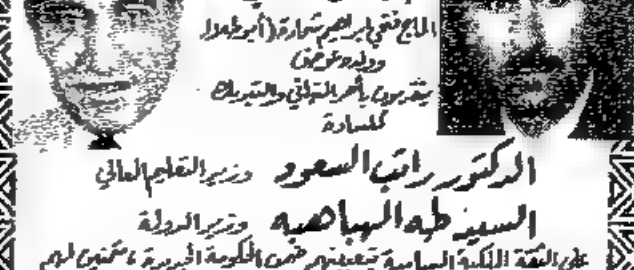 الحاج فتحي ابراهيم شحادة (أبو طلال)
وولده عوض
يتقدمون بأحر التهاني والتبريك
للسادة
الدكتور راتب السعود وزير التعليم العالي
السيد طه الهباهبه وزير الدولة
على الثقة الملكية السامية بتعيينهم ضمن الحكومة الجديدة، متمنين لهم